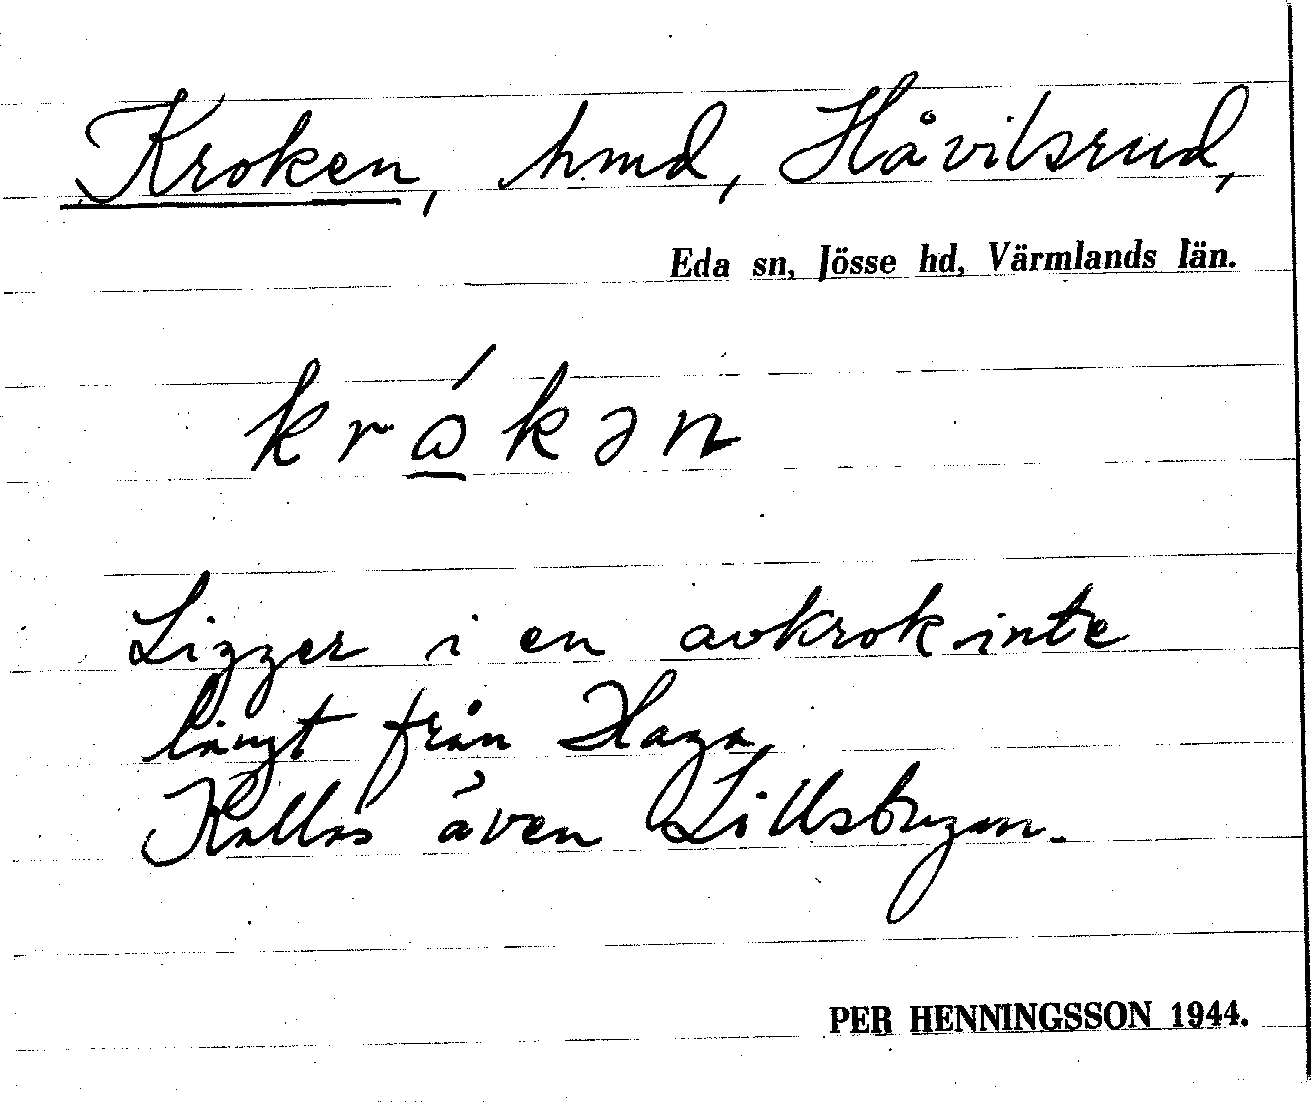 Kroken, hmd, Håvilsrud,
Eda sn, Jösse hd, Värmlands län.
krώ̲kən
Ligger i en avkrok inte
långt från Haga,
Kallas även Lillstugan.
PER HENNINGSSON 1944.